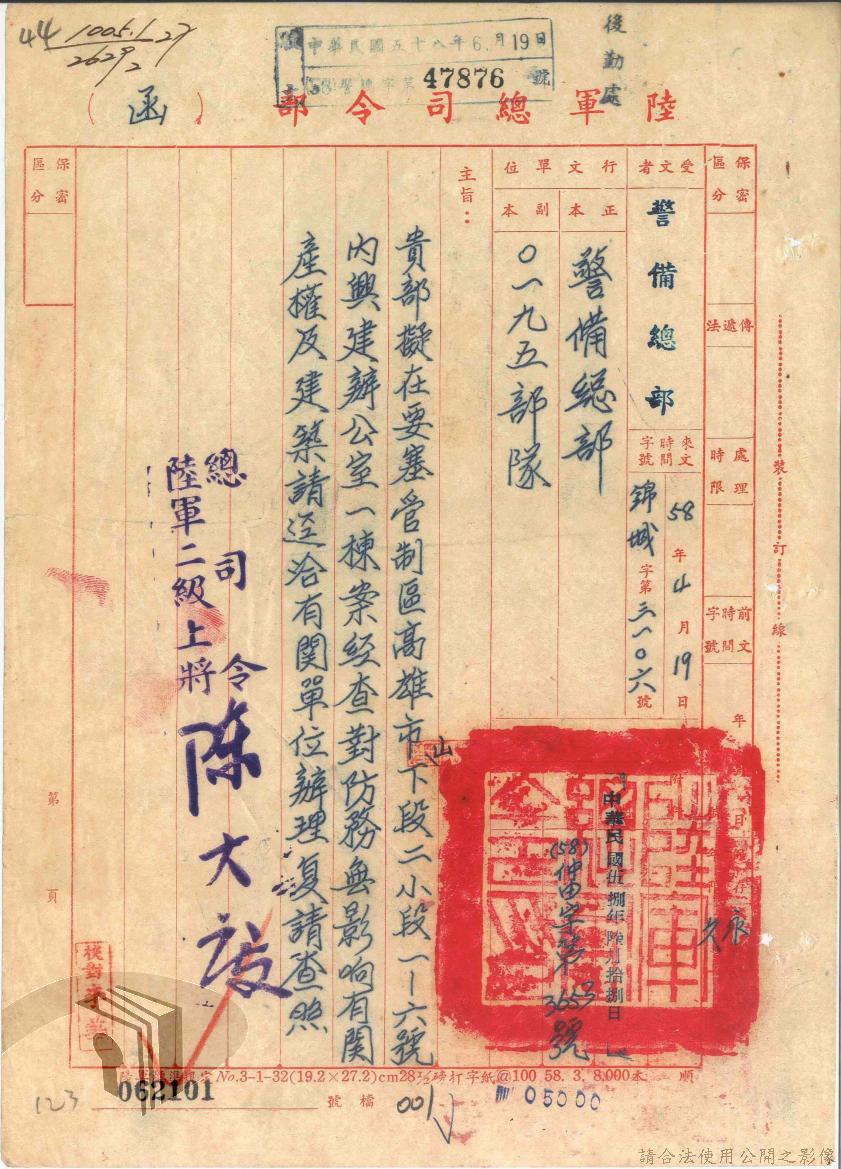 44
1005.1-27
26292
中華民國五十八年6月19日
(58)警機字第47876號
後勤處
陸軍總司令部（函）
保密區分
傳遞法
處理時限
前文時間字號
年
受文者
警備總部
來文時間字號
58年4月19日
錦城字第三一〇六號
行文單位
正本
警備總部
副本
〇一九五部隊
中華民國伍捌年陸月拾捌日
(58)仲田字第3653號
永久
主旨：
貴部擬在要塞管制區高雄市山下段二小段一－六號
內興建辦公室一棟案經查對防務無影响有関
產權及建築請逕洽有関單位辦理复請查照
總司令
陸軍二級上將
陳大慶
保密區分
第
頁
裝訂線
No.3-1-32(19.2×27.2)cm28½磅打字紙@100 58. 3. 8,000本
順
062101
檔號
001
05000
123
請合法使用公開之影像